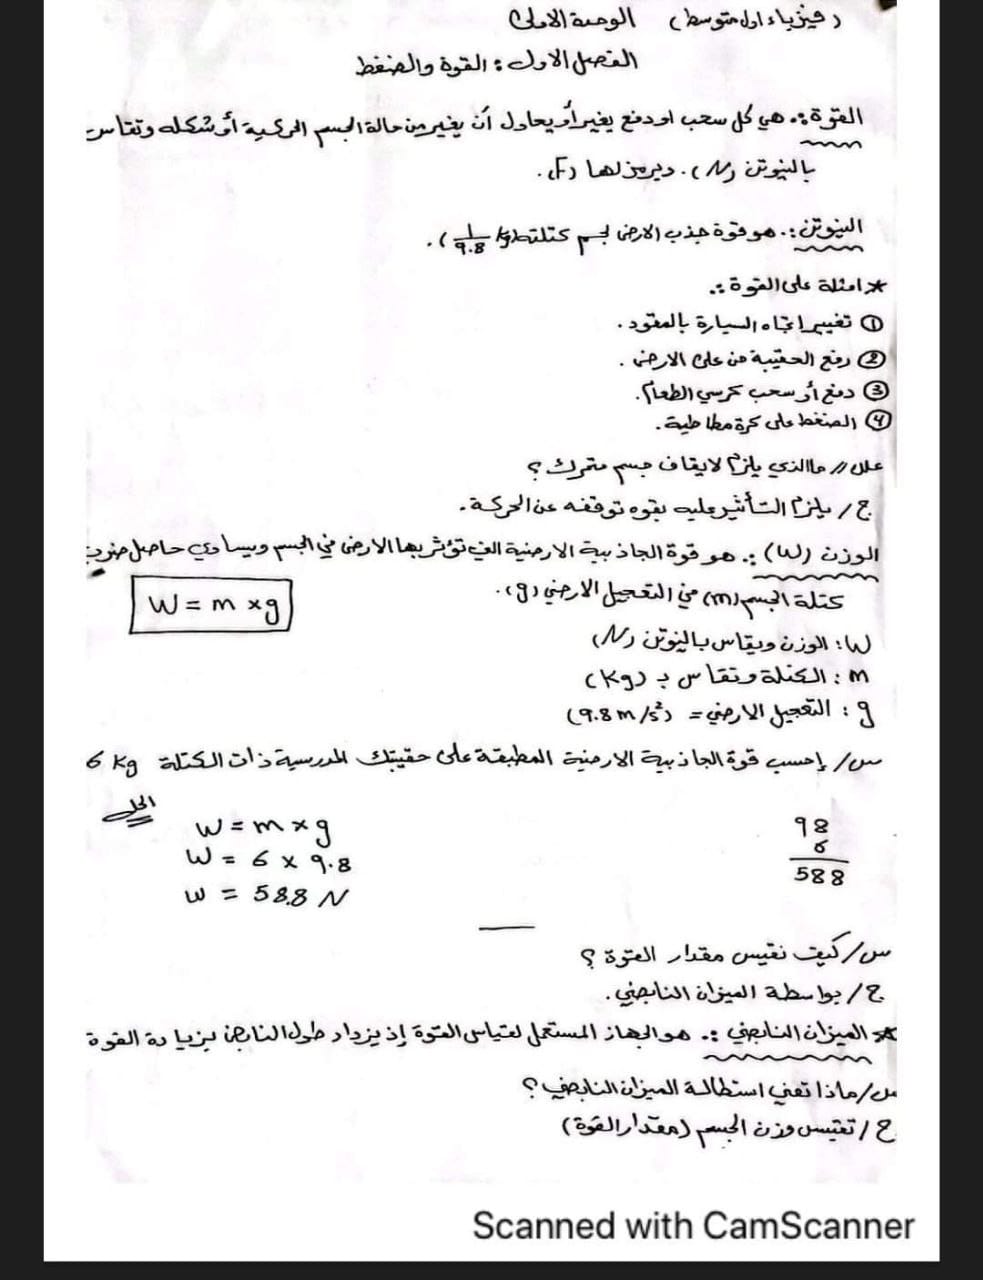 (فيزياء اول متوسط) الوحدة الاولى
الفصل الاول : القوة والضغط
القوة :. هي كل سحب او دفع يغير أو يحاول أن يغير من حالة الجسم الحركية أو شكله وتقاس
بالنيوتن (N). ويرمز لها (F).
النيوتن :. هو قوة جذب الارض لجسم كتلته (1/9.8 kg).
* امثلة على القوة :.
① تغيير اتجاه السيارة بالمقود.
② رفع الحقيبة من على الارض.
③ دفع أو سحب كرسي الطعام.
④ الضغط على كرة مطاطية.
علل // ما الذي يلزم لايقاف جسم متحرك ؟
ج / يلزم التأثير عليه بقوه توقفه عن الحركة.
الوزن (W) :. هو قوة الجاذبية الارضية التي تؤثر بها الارض في الجسم ويساوي حاصل ضرب
كتلة الجسم (m) في التعجيل الارضي (g).
W = m × g
W : الوزن ويقاس بالنيوتن (N)
m : الكتلة وتقاس بـ (kg)
g : التعجيل الارضي = (9.8 m/s²)
س/ إحسب قوة الجاذبية الارضية المطبقة على حقيبتك المدرسية ذات الكتلة 6 kg
الحل
W = m × g
W = 6 × 9.8
W = 58.8 N
98
6
588
س/ كيف نقيس مقدار القوة ؟
ج / بواسطة الميزان النابضي.
* الميزان النابضي :. هو الجهاز المستعمل لقياس القوة إذ يزداد طول النابض بزيادة القوة
س/ ماذا تعني استطالة الميزان النابضي ؟
ج / تقيس وزن الجسم (مقدار القوة)
Scanned with CamScanner